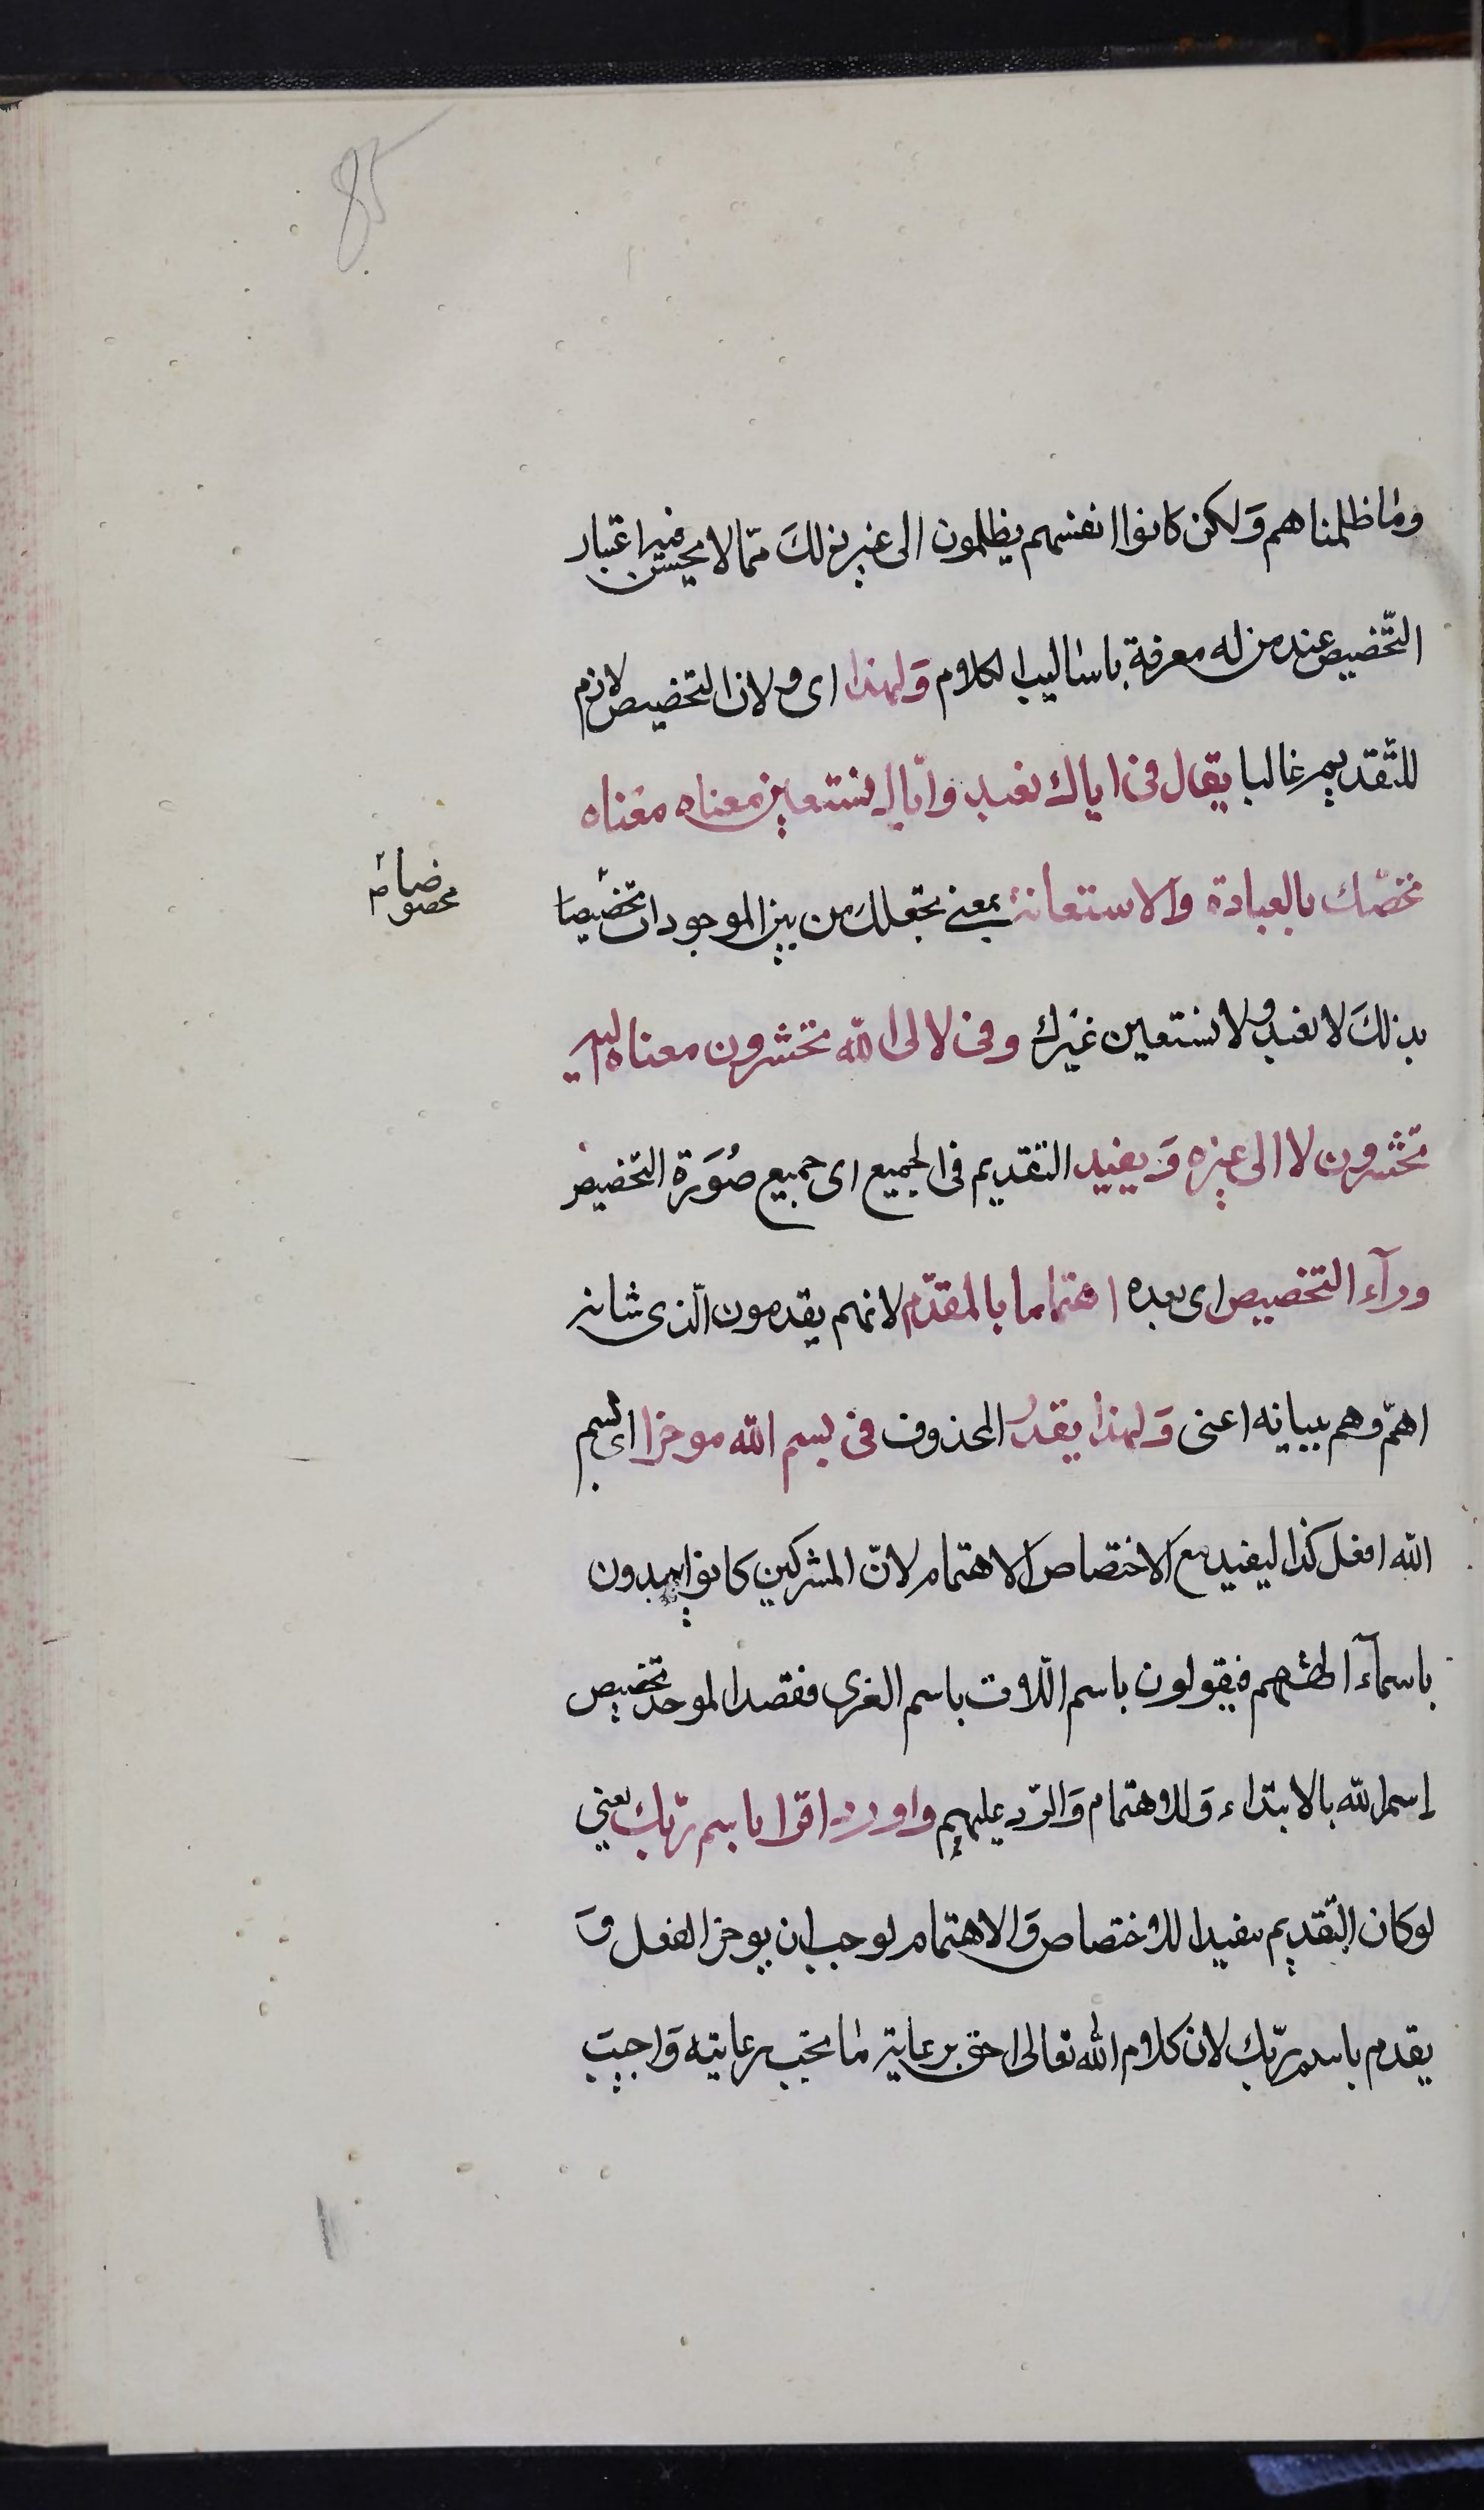 85
وما ظلمناهم وَلكن كانوا انفسهم يظلمون الى غير ذلكَ ممّا لا يحسن فيه اعتبار
التّخصيص عند من له معرفة باساليب الكلام وَلهذا اى ولان التخصيص لازم
للتّقديم غالبا يقال فى اياك نعبد واياك نستعين معناه معناه
نخصّك بالعبادة والاستعانة بمعنى نجعلك من بين الموجودات تخصيصا
مخصوصا
بذلكَ لا نعبد ولا نستعين غيرك وفى لالى الله تحشرون معناه اليه
تحشرون لا الى غيره وَيفيد التقديم فى الجميع اى جميع صُوَرة التخصيص
ورآء التخصيص اى بعده اهتماما بالمقدّم لانهم يقدمون الّذى شانه
اهمّ وهم ببيانه اعنى وَلهذا يقدر المحذوف فى بسم الله موخرا اى بسم
الله افعل كذا ليفيد مع الاختصاص الاهتمام لانّ المشركين كانوا يبدون
باسمآء الهتهم فيقولون باسم اللات باسم العزى فقصد الموحد تخصيص
اسم الله بالابتداء وَللاهتمام وَالرّد عليهم واورد اقرا باسم ربّك يعنى
لوكان التّقديم مفيدا للاختصاص وَالاهتمام لوجب ان يوخر الفعل وَ
يقدم باسم ربّك لان كلام الله تعالى احق برعاية ما تجب رعايته وَاجيبَ